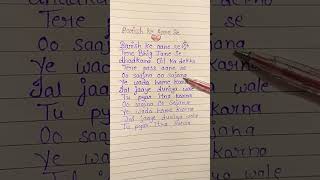 Barish Ke Aane Se
Barish Ke aane se
Tere Bhig Jane Se
dhadkano Ko dekho
Tere pass aane se
Oo Sajna oo Sajana
Ye wada hame Karna
Jal jaaye duniya wale
Tu pyar itna Karna
Oo Sajna oo Sajana
Ye wada hame Karna
Jal jaaye duniya wale
Tu pyar itna Karna